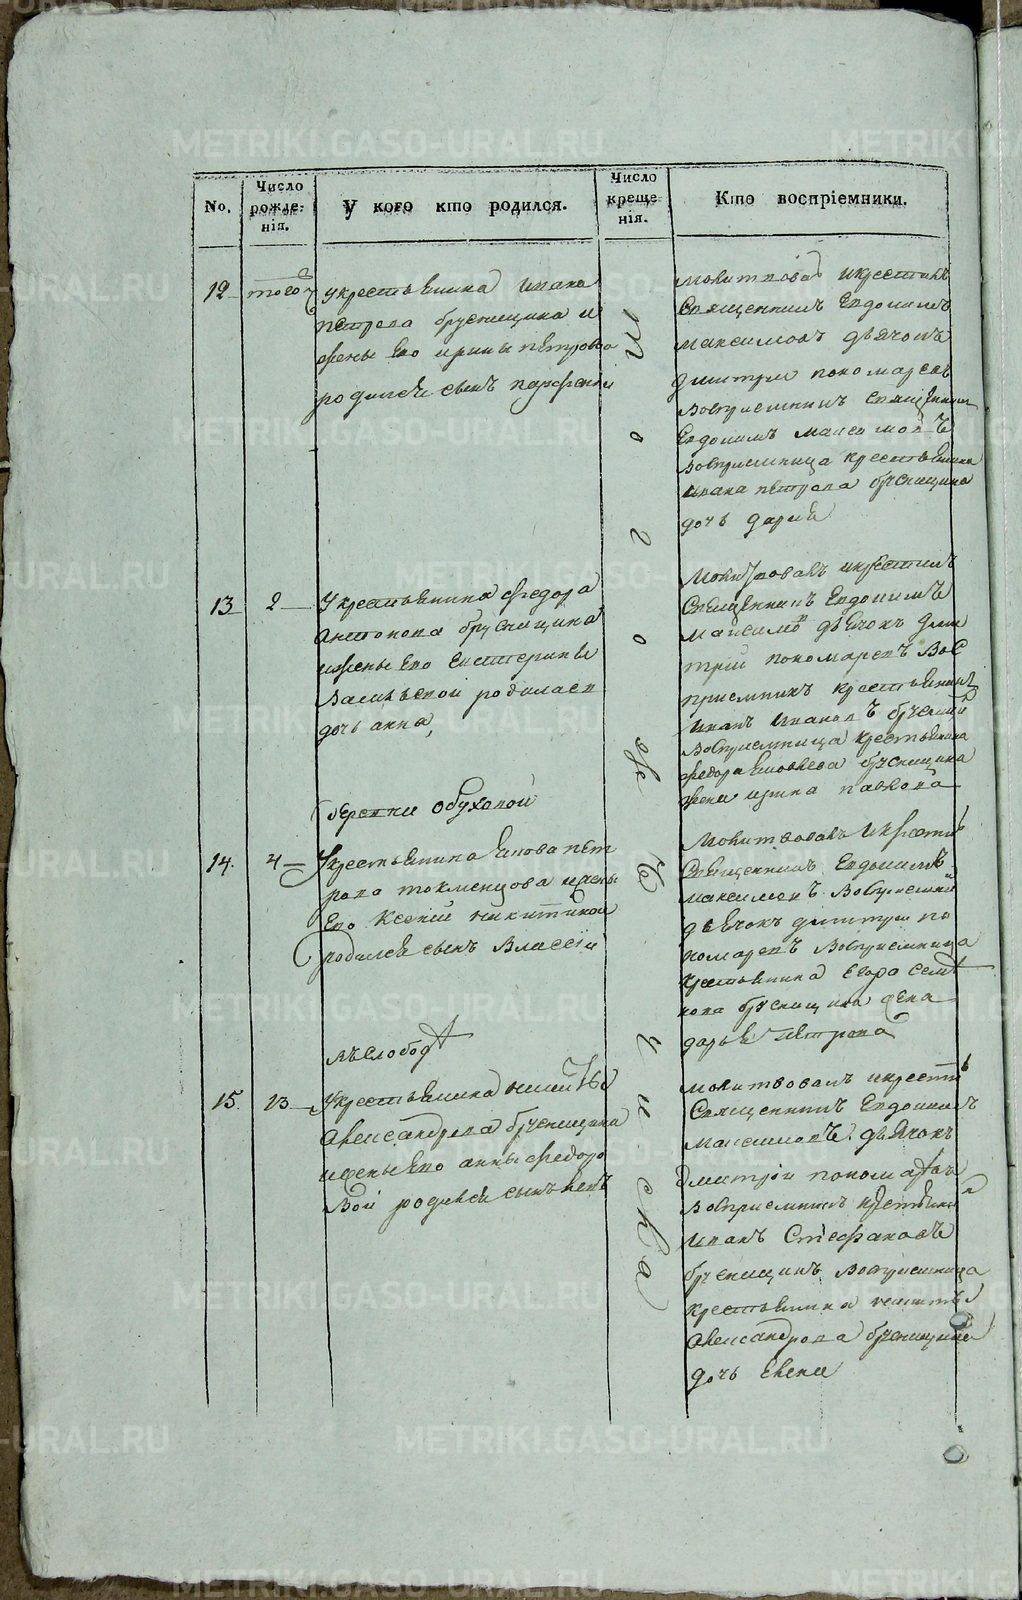 No.
Число рожде-
нія.
У кого кто родился.
Число
креще-
нія.
Кто воспріемники.
12
того ч
у крестьянина ивана
петрова брусницина и
жены его ирины петровой
родился сынъ парфений
молитвовал и крестилъ
Священникъ Евдокимъ
максимовъ дьячокъ
димтрий пономаревъ
Восприемникъ Священникъ
Евдокимъ максимовъ
Восприемница крестьянина
ивана петрова брусницина
дочь дария
13
2
У крестьянина федора
антонова брусницина
и жены его екатерины
Васильевой родилась
дочь анна
Молитвовалъ и крестилъ
Священникъ Евдокимъ
максимовъ дьячокъ дми
трiй пономаревъ Вос
приемникъ крестьянинъ
Иванъ ивановъ брусницинъ
Восприемница крестьянина
федора яковлева брусницина
жена павлова
Деревни обуховой
14.
4
У крестьянина якова пет
рова токменцова и жены
его Ксении никитиной
родился сынъ Власий
Молитвовалъ и крестилъ
Священникъ Евдокимъ
максимовъ Восприемникъ
дьячокъ димтрий по
номаревъ Восприемница
крестьянина Егора семе
нова брусницина жена
дарья петрова
въ слободѣ
15.
13
У крестьянина никиты
Александрова брусницина
и жены его анны федоро
вой родился сынъ
молитвовалъ и крестилъ
Священникъ Евдокимъ
максимовъ дьячокъ
дмитрiй пономаревъ
Восприемникъ крестьянинъ
иванъ Стефановъ
брусницинъ Восприемница
крестьянина никиты
Александрова брусницина
дочь
того же числа
METRIKI.GASO-URAL.RU